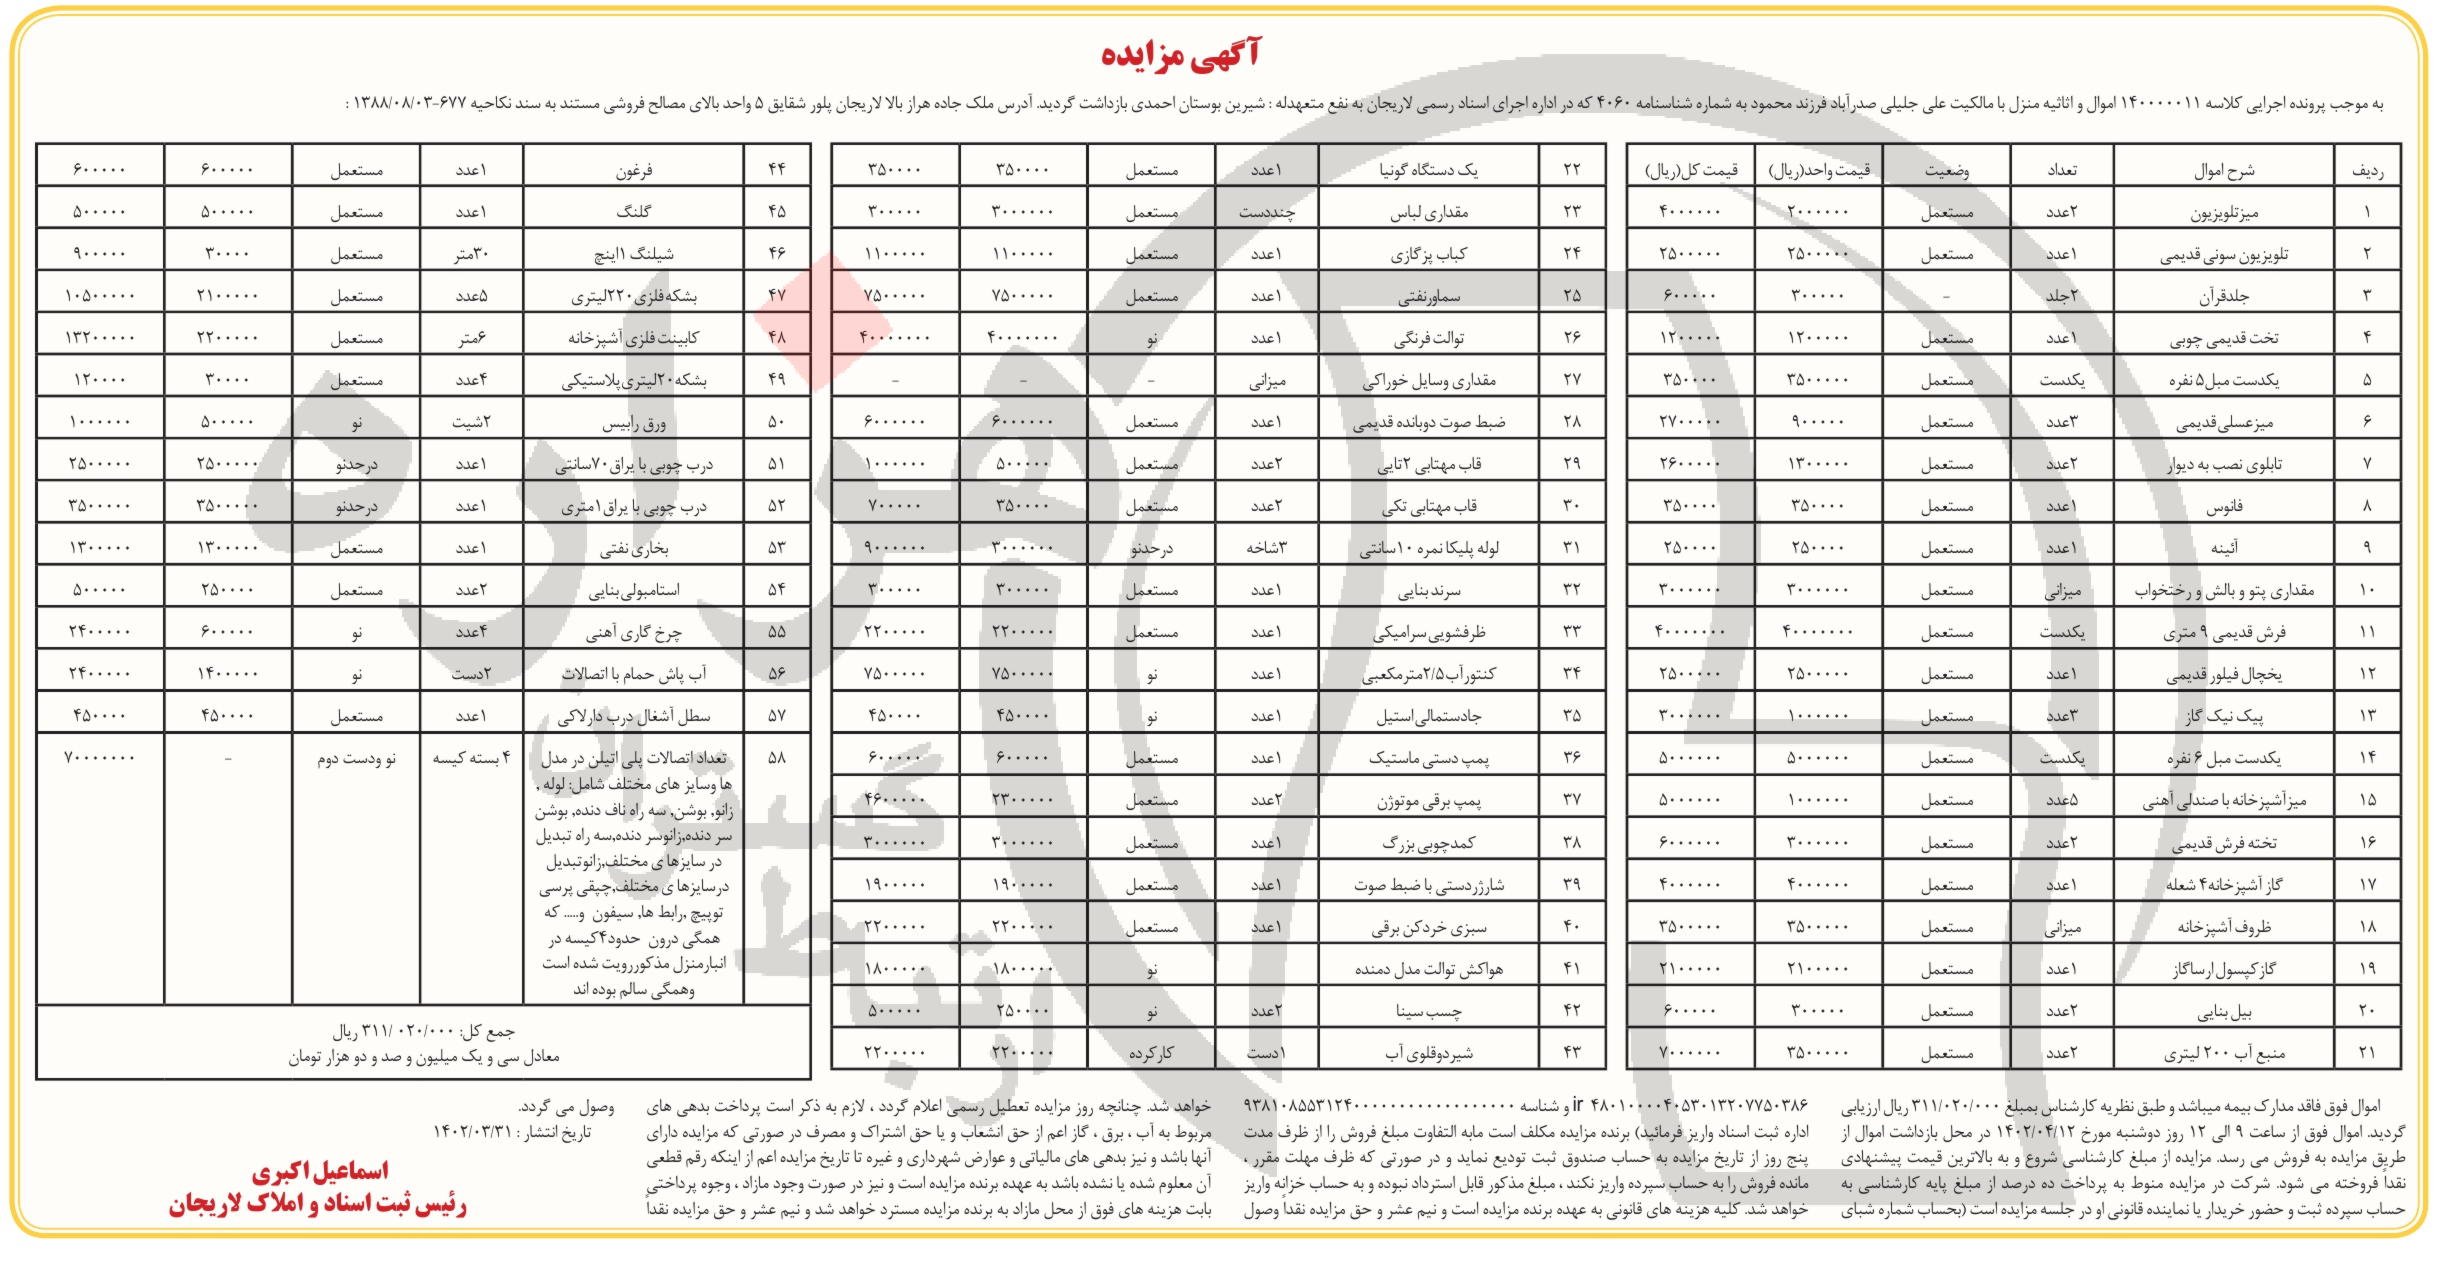 آگهی مزایده
به موجب پرونده اجرایی کلاسه ۱۴۰۰۰۰۰۱۱ اموال و اثاثیه منزل با مالکیت علی جلیلی صدرآباد فرزند محمود به شماره شناسنامه ۴۰۶۰ که در اداره اجرای اسناد رسمی لاریجان به نفع متعهدله : شیرین بوستان احمدی بازداشت گردید. آدرس ملک جاده هراز بالا لاریجان پلور شقایق ۵ واحد بالای مصالح فروشی مستند به سند نکاحیه ۶۷۷-۱۳۸۸/۰۸/۰۳ :
ردیف شرح اموال تعداد وضعیت قیمت واحد(ریال) قیمت کل(ریال)
۱ میزتلویزیون ۲عدد مستعمل ۲۰۰۰۰۰۰ ۴۰۰۰۰۰۰
۲ تلویزیون سونی قدیمی ۱عدد مستعمل ۲۵۰۰۰۰۰ ۲۵۰۰۰۰۰
۳ جلدقرآن ۲جلد - ۳۰۰۰۰۰ ۶۰۰۰۰۰
۴ تخت قدیمی چوبی ۱عدد مستعمل ۱۲۰۰۰۰۰ ۱۲۰۰۰۰۰
۵ یکدست مبل۵ نفره یکدست مستعمل ۳۵۰۰۰۰۰ ۳۵۰۰۰۰
۶ میزعسلی قدیمی ۳عدد مستعمل ۹۰۰۰۰۰ ۲۷۰۰۰۰۰
۷ تابلوی نصب به دیوار ۲عدد مستعمل ۱۳۰۰۰۰۰ ۲۶۰۰۰۰۰
۸ فانوس ۱عدد مستعمل ۳۵۰۰۰۰ ۳۵۰۰۰۰
۹ آئینه ۱عدد مستعمل ۲۵۰۰۰۰ ۲۵۰۰۰۰
۱۰ مقداری پتو و بالش و رختخواب میزانی مستعمل ۳۰۰۰۰۰۰ ۳۰۰۰۰۰۰
۱۱ فرش قدیمی ۹ متری یکدست مستعمل ۴۰۰۰۰۰۰۰ ۴۰۰۰۰۰۰۰
۱۲ یخچال فیلور قدیمی ۱عدد مستعمل ۲۵۰۰۰۰۰ ۲۵۰۰۰۰۰
۱۳ پیک نیک گاز ۳عدد مستعمل ۱۰۰۰۰۰۰ ۳۰۰۰۰۰۰
۱۴ یکدست مبل ۶ نفره یکدست مستعمل ۵۰۰۰۰۰۰ ۵۰۰۰۰۰۰
۱۵ میزآشپزخانه با صندلی آهنی ۵عدد مستعمل ۱۰۰۰۰۰۰ ۵۰۰۰۰۰۰
۱۶ تخته فرش قدیمی ۲عدد مستعمل ۳۰۰۰۰۰۰ ۶۰۰۰۰۰۰
۱۷ گاز آشپزخانه۴ شعله ۱عدد مستعمل ۴۰۰۰۰۰۰ ۴۰۰۰۰۰۰
۱۸ ظروف آشپزخانه میزانی مستعمل ۳۵۰۰۰۰۰ ۳۵۰۰۰۰۰
۱۹ گازکپسول ارساگاز ۱عدد مستعمل ۲۱۰۰۰۰۰ ۲۱۰۰۰۰۰
۲۰ بیل بنایی ۲عدد مستعمل ۳۰۰۰۰۰ ۶۰۰۰۰۰
۲۱ منبع آب ۲۰۰ لیتری ۲عدد مستعمل ۳۵۰۰۰۰۰ ۷۰۰۰۰۰۰
۲۲ یک دستگاه گونیا ۱عدد مستعمل ۳۵۰۰۰۰ ۳۵۰۰۰۰
۲۳ مقداری لباس چنددست مستعمل ۳۰۰۰۰۰۰ ۳۰۰۰۰۰
۲۴ کباب پزگازی ۱عدد مستعمل ۱۱۰۰۰۰۰ ۱۱۰۰۰۰۰
۲۵ سماورنفتی ۱عدد مستعمل ۷۵۰۰۰۰۰ ۷۵۰۰۰۰۰
۲۶ توالت فرنگی ۱عدد نو ۴۰۰۰۰۰۰۰ ۴۰۰۰۰۰۰۰
۲۷ مقداری وسایل خوراکی میزانی - - -
۲۸ ضبط صوت دوبانده قدیمی ۱عدد مستعمل ۶۰۰۰۰۰۰ ۶۰۰۰۰۰۰
۲۹ قاب مهتابی ۲تایی ۲عدد مستعمل ۵۰۰۰۰۰ ۱۰۰۰۰۰۰
۳۰ قاب مهتابی تکی ۲عدد مستعمل ۳۵۰۰۰۰ ۷۰۰۰۰۰
۳۱ لوله پلیکا نمره ۱۰سانتی ۳شاخه درحدنو ۳۰۰۰۰۰۰ ۹۰۰۰۰۰۰
۳۲ سرند بنایی ۱عدد مستعمل ۳۰۰۰۰۰ ۳۰۰۰۰۰
۳۳ ظرفشویی سرامیکی ۱عدد مستعمل ۲۲۰۰۰۰۰ ۲۲۰۰۰۰۰
۳۴ کنتورآب۲/۵مترمکعبی ۱عدد نو ۷۵۰۰۰۰۰ ۷۵۰۰۰۰۰
۳۵ جادستمالی استیل ۱عدد نو ۴۵۰۰۰۰ ۴۵۰۰۰۰
۳۶ پمپ دستی ماستیک ۱عدد مستعمل ۶۰۰۰۰۰ ۶۰۰۰۰۰
۳۷ پمپ برقی موتوژن ۲عدد مستعمل ۲۳۰۰۰۰۰ ۴۶۰۰۰۰۰
۳۸ کمدچوبی بزرگ ۱عدد مستعمل ۳۰۰۰۰۰۰ ۳۰۰۰۰۰۰
۳۹ شارژردستی با ضبط صوت ۱عدد مستعمل ۱۹۰۰۰۰۰ ۱۹۰۰۰۰۰
۴۰ سبزی خردکن برقی ۱عدد مستعمل ۲۲۰۰۰۰۰ ۲۲۰۰۰۰۰
۴۱ هواکش توالت مدل دمنده نو ۱۸۰۰۰۰۰ ۱۸۰۰۰۰۰
۴۲ چسب سینا ۲عدد نو ۲۵۰۰۰۰ ۵۰۰۰۰۰
۴۳ شیردوقلوی آب ۱دست کارکرده ۲۲۰۰۰۰۰ ۲۲۰۰۰۰۰
۴۴ فرغون ۱عدد مستعمل ۶۰۰۰۰۰ ۶۰۰۰۰۰
۴۵ گلنگ ۱عدد مستعمل ۵۰۰۰۰۰ ۵۰۰۰۰۰
۴۶ شیلنگ ۱اینچ ۳۰متر مستعمل ۳۰۰۰۰ ۹۰۰۰۰۰
۴۷ بشکه فلزی ۲۲۰لیتری ۵عدد مستعمل ۲۱۰۰۰۰۰ ۱۰۵۰۰۰۰۰
۴۸ کابینت فلزی آشپزخانه ۶متر مستعمل ۲۲۰۰۰۰۰ ۱۳۲۰۰۰۰۰
۴۹ بشکه۲۰لیتری پلاستیکی ۴عدد مستعمل ۳۰۰۰۰ ۱۲۰۰۰۰
۵۰ ورق رابیس ۲شیت نو ۵۰۰۰۰۰ ۱۰۰۰۰۰۰
۵۱ درب چوبی با یراق۷۰سانتی ۱عدد درحدنو ۲۵۰۰۰۰۰ ۲۵۰۰۰۰۰
۵۲ درب چوبی با یراق۱متری ۱عدد درحدنو ۳۵۰۰۰۰۰ ۳۵۰۰۰۰۰
۵۳ بخاری نفتی ۱عدد مستعمل ۱۳۰۰۰۰۰ ۱۳۰۰۰۰۰
۵۴ استامبولی بنایی ۲عدد مستعمل ۲۵۰۰۰۰ ۵۰۰۰۰۰
۵۵ چرخ گاری آهنی ۴عدد نو ۶۰۰۰۰۰ ۲۴۰۰۰۰۰
۵۶ آب پاش حمام با اتصالات ۲دست نو ۱۴۰۰۰۰۰ ۲۴۰۰۰۰۰
۵۷ سطل آشغال درب دارلاکی ۱عدد مستعمل ۴۵۰۰۰۰ ۴۵۰۰۰۰
۵۸ تعداد اتصالات پلی اتیلن در مدل ۴ بسته کیسه نو ودست دوم - ۷۰۰۰۰۰۰۰
ها وسایز های مختلف شامل: لوله ,
زانو, بوشن, سه راه ناف دنده, بوشن
سر دنده,زانوسر دنده,سه راه تبدیل
در سایزها ی مختلف,زانوتبدیل
درسایزها ی مختلف,چپقی پرسی
توپیچ ,رابط ها, سیفون و..... که
همگی درون حدود۴کیسه در
انبارمنزل مذکوررویت شده است
وهمگی سالم بوده اند
جمع کل: ۳۱۱/ ۰۲۰/۰۰۰ ریال
معادل سی و یک میلیون و صد و دو هزار تومان
اموال فوق فاقد مدارک بیمه میباشد و طبق نظریه کارشناس بمبلغ ۳۱۱/۰۲۰/۰۰۰ ریال ارزیابی
گردید. اموال فوق از ساعت ۹ الی ۱۲ روز دوشنبه مورخ ۱۴۰۲/۰۴/۱۲ در محل بازداشت اموال از
طریق مزایده به فروش می رسد. مزایده از مبلغ کارشناسی شروع و به بالاترین قیمت پیشنهادی
نقداً فروخته می شود. شرکت در مزایده منوط به پرداخت ده درصد از مبلغ پایه کارشناسی به
حساب سپرده ثبت و حضور خریدار یا نماینده قانونی او در جلسه مزایده است (بحساب شماره شبای
ir ۴۸۰۱۰۰۰۰۴۰۵۳۰۱۳۲۰۷۷۵۰۳۸۶ و شناسه ۹۳۸۱۰۸۵۵۳۱۲۴۰۰۰۰۰۰۰۰۰۰۰۰۰۰۰۰۰۰
اداره ثبت اسناد واریز فرمائید) برنده مزایده مکلف است مابه التفاوت مبلغ فروش را از ظرف مدت
پنج روز از تاریخ مزایده به حساب صندوق ثبت تودیع نماید و در صورتی که ظرف مهلت مقرر ،
مانده فروش را به حساب سپرده واریز نکند ، مبلغ مذکور قابل استرداد نبوده و به حساب خزانه واریز
خواهد شد. کلیه هزینه های قانونی به عهده برنده مزایده است و نیم عشر و حق مزایده نقداً وصول
خواهد شد. چنانچه روز مزایده تعطیل رسمی اعلام گردد ، لازم به ذکر است پرداخت بدهی های
مربوط به آب ، برق ، گاز اعم از حق انشعاب و یا حق اشتراک و مصرف در صورتی که مزایده دارای
آنها باشد و نیز بدهی های مالیاتی و عوارض شهرداری و غیره تا تاریخ مزایده اعم از اینکه رقم قطعی
آن معلوم شده یا نشده باشد به عهده برنده مزایده است و نیز در صورت وجود مازاد ، وجوه پرداختی
بابت هزینه های فوق از محل مازاد به برنده مزایده مسترد خواهد شد و نیم عشر و حق مزایده نقداً
وصول می گردد.
تاریخ انتشار : ۱۴۰۲/۰۳/۳۱
اسماعیل اکبری
رئیس ثبت اسناد و املاک لاریجان
هزاره
گسترش
ارتباط